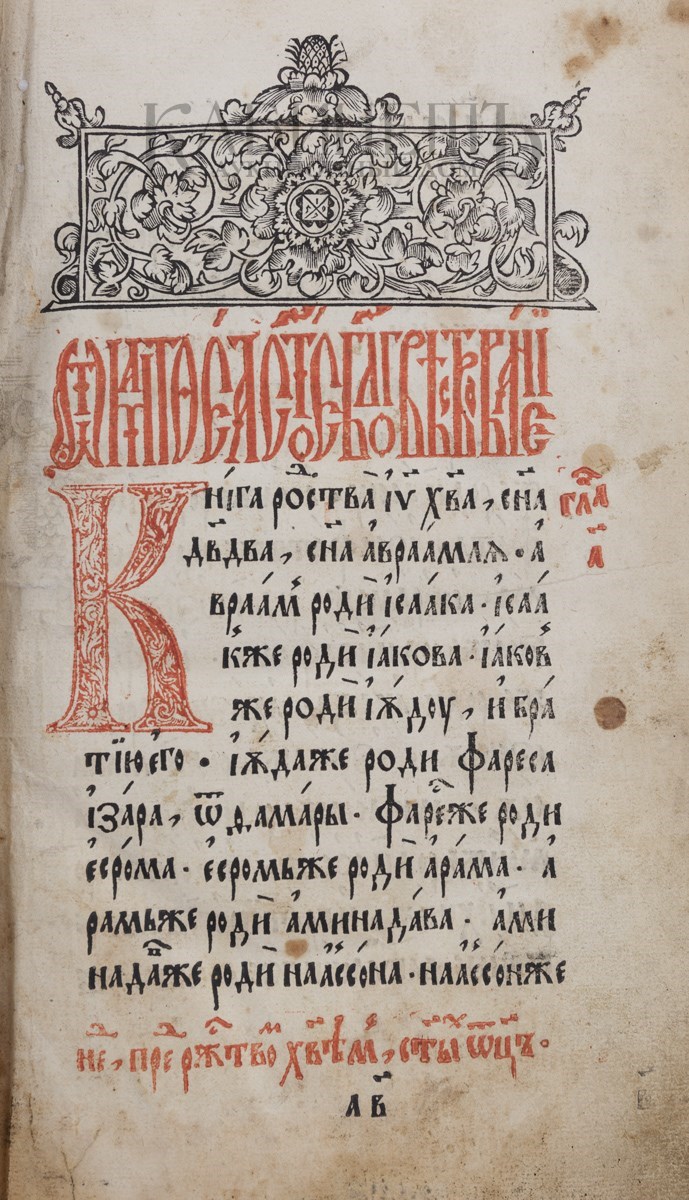 Ѿ матѳеа ст҃ое бл҃говѣствованїе
Кни́га рⷭ҇ства і҆ѵ҃ хв҃а, сн҃а
гла҃
дв҃два, сн҃а а҆враа́млѧ. а҆
а҃
враа́мъ родѝ і҆саа́ка. і҆саа́
к̾же родѝ і҆а́кова. і҆а́ков̾
же родѝ і҆ꙋ́доу, и҆ бра́
тїю є҆го̀. і҆ꙋ́даже родѝ фаре́са
і҆за́ра, ѿ ѳама́ры. фаре́сже родѝ
є҆сро́ма. є҆сромъже родѝ а҆ра́ма. а҆
рамъже родѝ а҆минада́ва. а҆ми
нада́вже родѝ наассо́на. наассо́нже
не҃, пре рж҇тво́мъ хв҃ѣмъ, ст҃ы ѿц҃ъ.
а҃ в҃